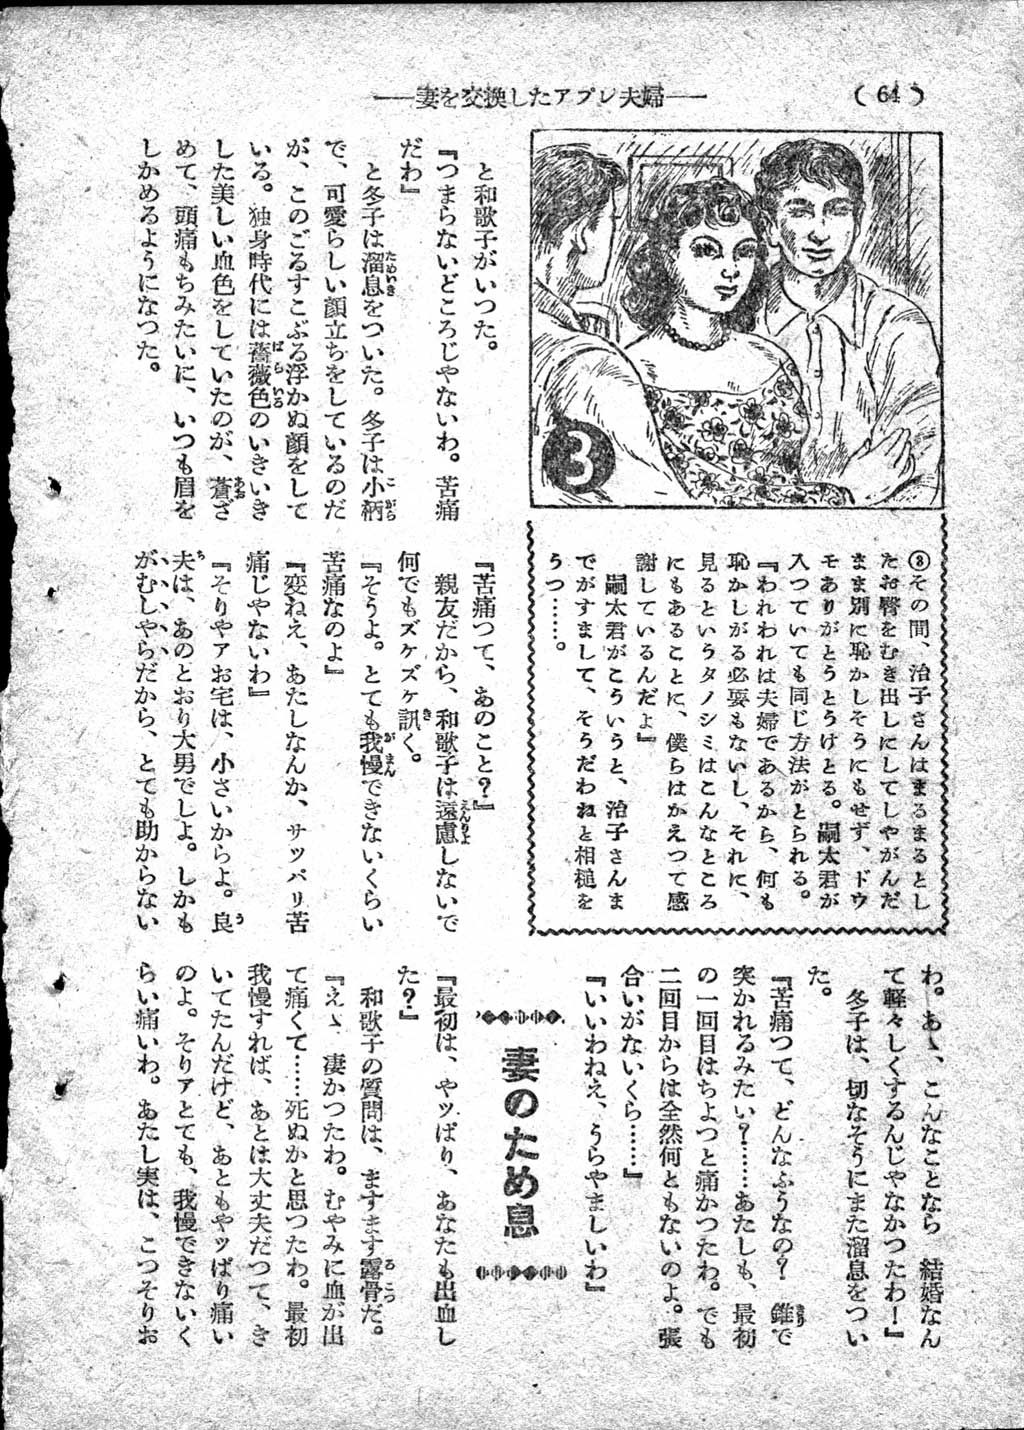 (64)
――妻を交換したアプレ夫婦――
と和歌子がいつた。
『つまらないどころじやないわ。苦痛
だわ』
と冬子は溜息をついた。冬子は小柄
で、可愛らしい顔立ちをしているのだ
が、このごろすこぶる浮かぬ顔をして
いる。独身時代には薔薇色のいきいき
した美しい血色をしていたのが、蒼ざ
めて、頭痛もちみたいに、いつも眉を
しかめるようになつた。
3
③その間、治子さんはまるまるとし
たお臀をむき出しにしてしやがんだ
まま別に恥かしそうにもせず、ドウ
モありがとうとうけとる。嗣太君が
入つていても同じ方法がとられる。
『われわれは夫婦であるから、何も
恥かしがる必要もないし、それに、
見るというタノシミはこんなところ
にもあることに、僕らはかえつて感
謝しているんだよ』
嗣太君がこういうと、治子さんま
でがすまして、そうだわねと相槌を
うつ……。
『苦痛つて、あのこと?』
親友だから、和歌子は遠慮しないで
何でもズケズケ訊く。
『そうよ。とても我慢できないくらい
苦痛なのよ』
『変ねえ、あたしなんか、サツパリ苦
痛じやないわ』
『そりやアお宅は、小さいからよ。良
夫は、あのとおり大男でしよ。しかも
がむしやらだから、とても助からない
わ。あゝ、こんなことなら 結婚なん
て軽々しくするんじやなかつたわ!』
冬子は、切なそうにまた溜息をつい
た。
『苦痛つて、どんなふうなの? 錐で
突かれるみたい?……あたしも、最初
の一回目はちよつと痛かつたわ。でも
二回目からは全然何ともないのよ。張
合いがないくら……』
『いいわねえ、うらやましいわ』
妻のため息
『最初は、やッぱり、あなたも出血し
た?』
和歌子の質問は、ますます露骨だ。
『えゝ 凄かつたわ。むやみに血が出
て痛くて……死ぬかと思つたわ。最初
我慢すれば、あとは大丈夫だつて、き
いてたんだけど、あともやッぱり痛い
のよ。そりアとても、我慢できないく
らい痛いわ。あたし実は、こつそりお